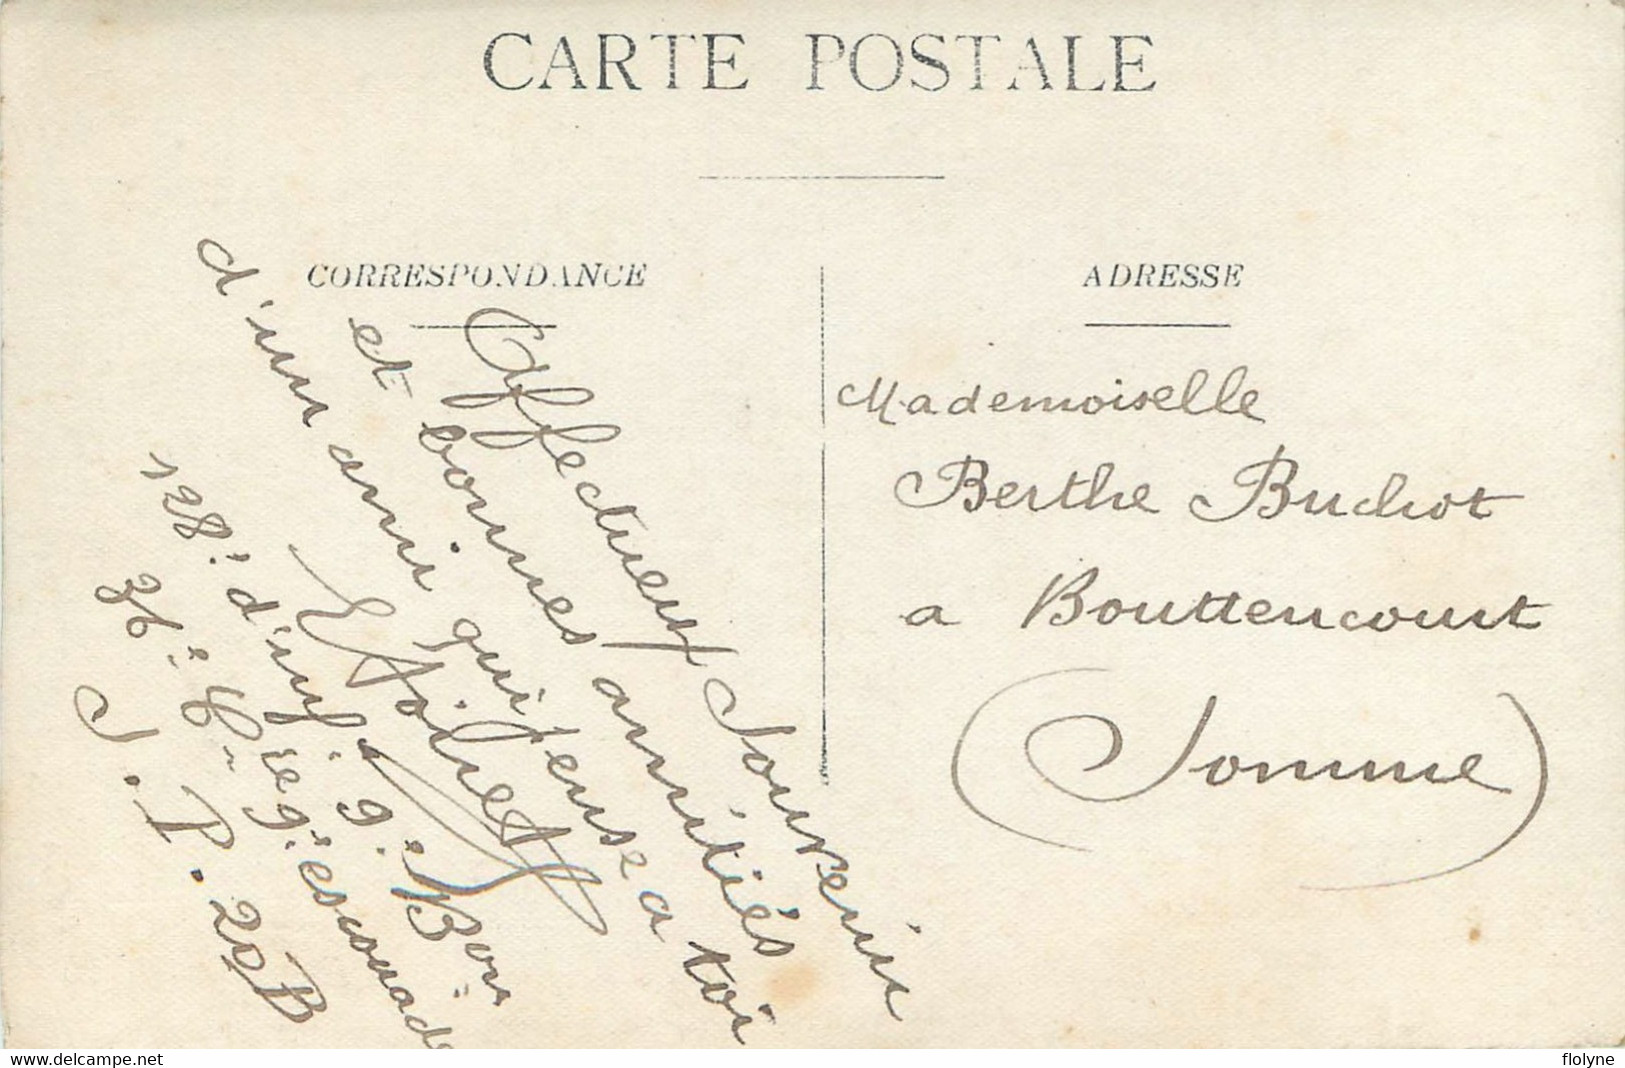 CARTE POSTALE
CORRESPONDANCE
ADRESSE
Affectueux Souvenir
et bonnes amitiés
d'un ami qui pense a toi
128e d'inf. 9e Bon
36e Cie 1e escouade
S. P. 20B
Mademoiselle
Berthe Buchot
a Bouttencourt
(Somme)
www.delcampe.net
flolyne